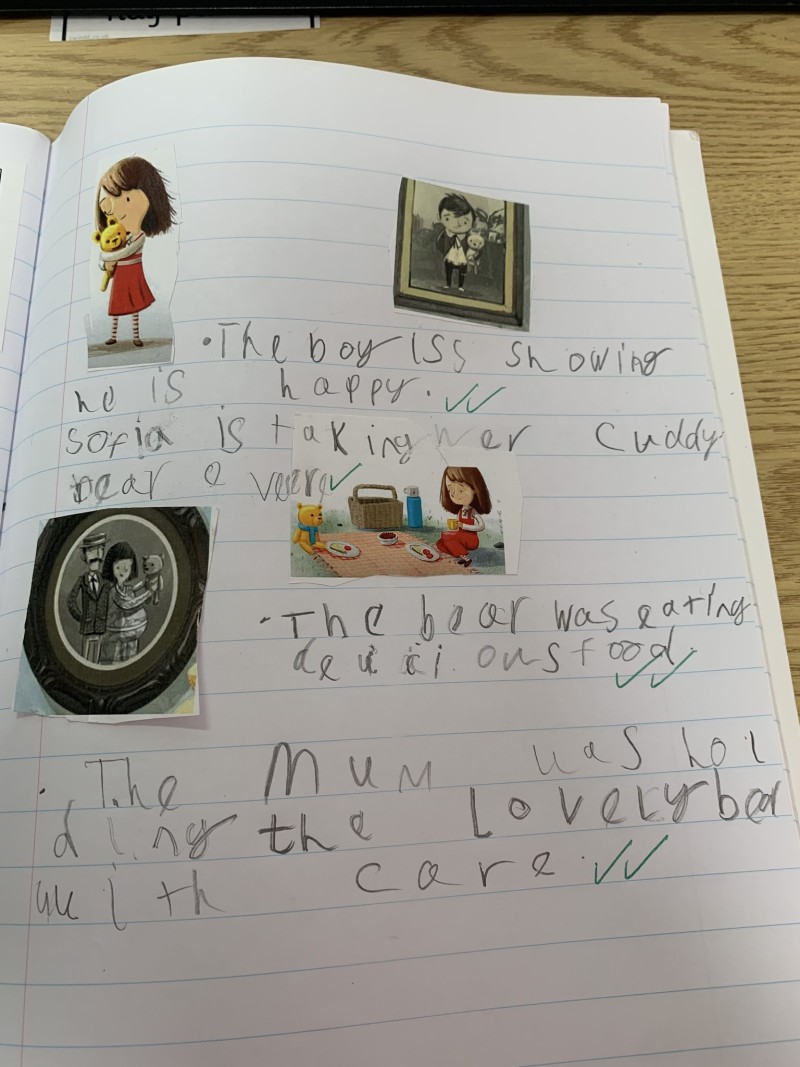 •The boy iss showing
he is happy.
sofia is taking her cuddy
bear e
•The bear was eating
food.
•The Mum was hol
ding the Lovely bear
with care.